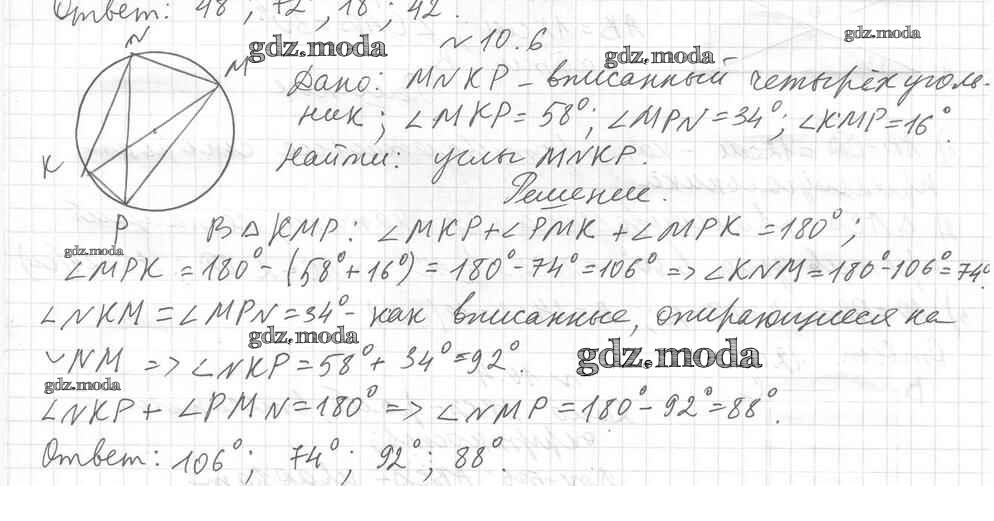 Ответ: 48°; 72°; 18°; 42°.
N
M
K
P
gdz.moda
gdz.moda
gdz.moda
№10.6
Дано: MNKP – вписанный четырёхуголь-
ник; ∠MKP = 58°; ∠MPN = 34°; ∠KMP = 16°
Найти: углы MNKP.
Решение.
В △KMP: ∠MKP + ∠PMK + ∠MPK = 180°;
gdz.moda
∠MPK = 180° - (58° + 16°) = 180° - 74° = 106° => ∠KNM = 180° - 106° = 74°
∠NKM = ∠MPN = 34° - как вписанные, опирающиеся на
gdz.moda
◡NM => ∠NKP = 58° + 34° = 92°.
gdz.moda
gdz.moda
∠NKP + ∠PMN = 180° => ∠NMP = 180° - 92° = 88°.
Ответ: 106°; 74°; 92°; 88°.